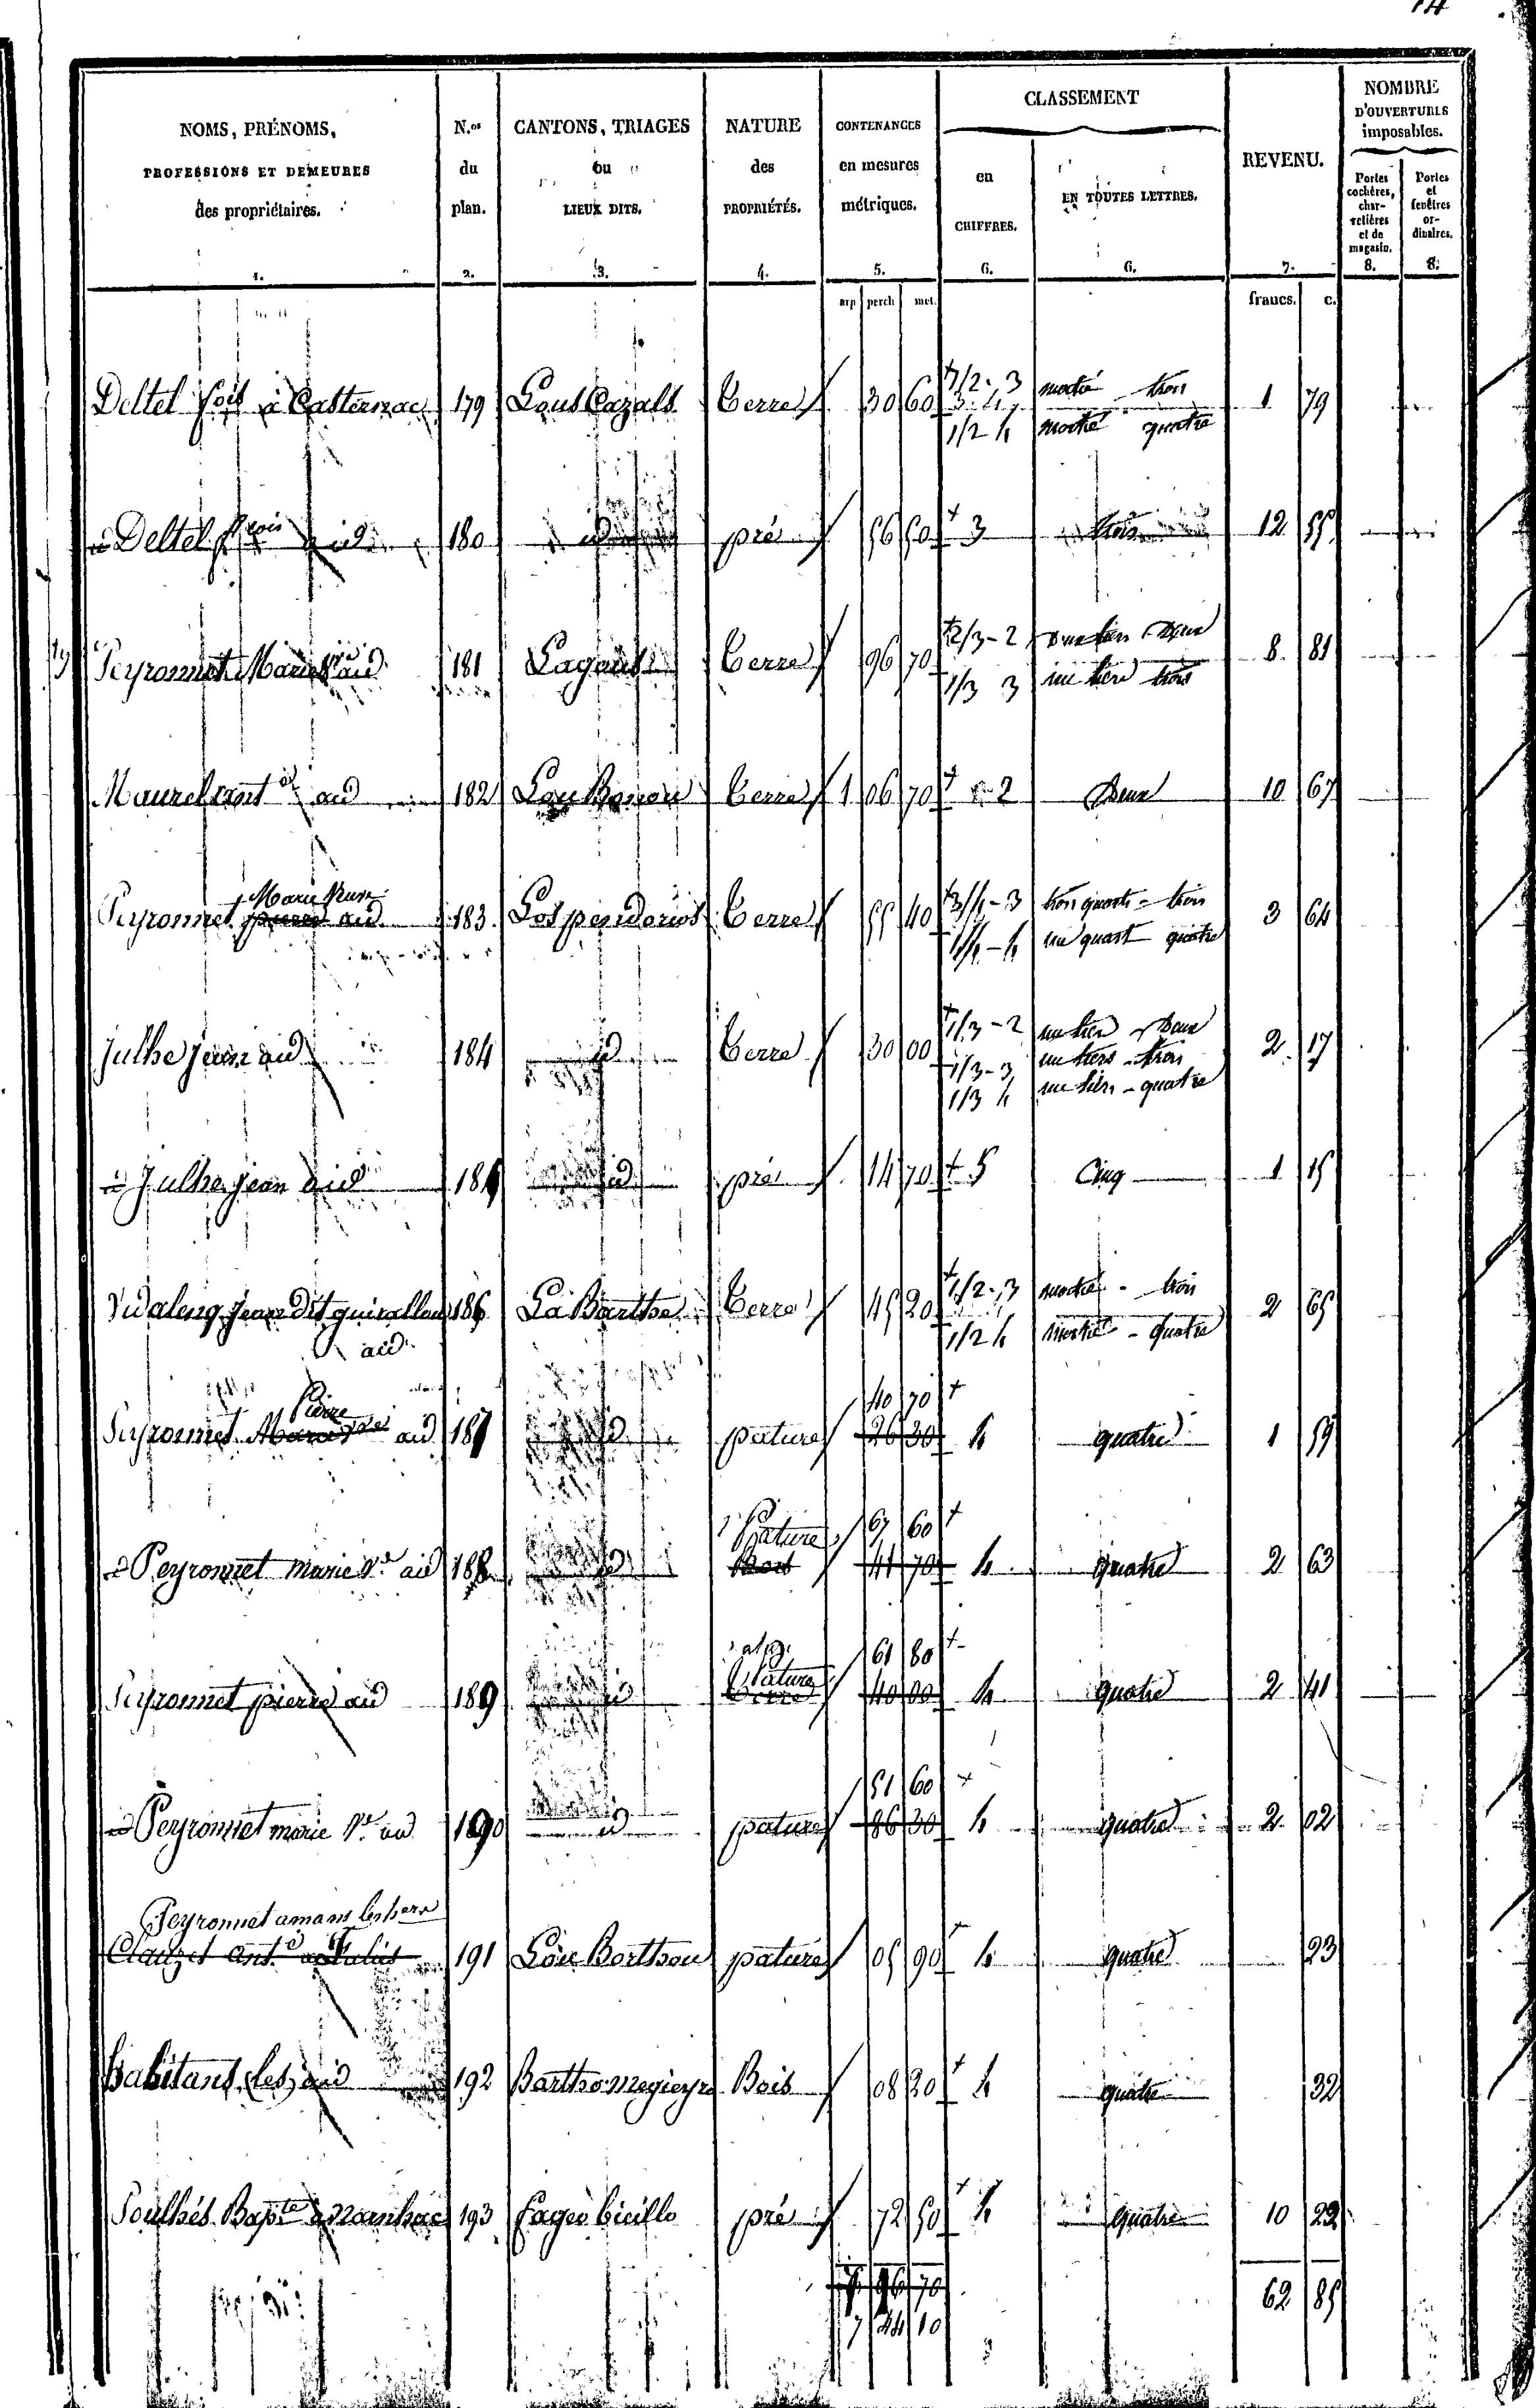 NOMS, PRÉNOMS, PROFESSIONS ET DEMEURES des propriétaires. 1.
N.os du plan. 2.
CANTONS, TRIAGES ou LIEUX DITS. 3.
NATURE des PROPRIÉTÉS. 4.
CONTENANCES en mesures métriques. 5.
CLASSEMENT
en CHIFFRES. 6.
EN TOUTES LETTRES. 6.
REVENU. 7.
NOMBRE D'OUVERTURES imposables.
Portes cochères, charretières et de magasin. 8.
Portes et fenêtres ordinaires. 8.
arp perch met. francs. c.
Deltel à Casternac 179 Lous Cazals Terre 30 60 1/2 - 3 moitié trois 1 79
1/2 4 moitié quatre
Deltel id 180 id pré 56 50 3 trois 12 55
Peyronnet Marie aid 181 Terre 96 70 2/3 - 2 deux 8 81
1/3 3 un tiers trois
Maurel ant aid 182 Lou Bouou Terre 1 06 70 2 Deux 10 67
Marie Veuve
Peyronnet pierre aid 183 Los penderios Terre 55 40 3/4 - 3 trois quarts - trois 3 64
1/4 - 4 un quart quatre
Julhe jean aid 184 id Terre 30 00 1/3 - 2 un tiers Deux 2 17
1/3 - 3 un tiers - trois
1/3 4 un tiers - quatre
Julhe jean aid 185 id pré 14 70 5 Cinq 1 15
Vidaleng jean dit guirallou 186 La Barthe Terre 45 20 1/2 - 3 moitié - trois 2 65
aid 1/2 4 moitié - quatre
Pierre 40 70
Peyronnet Marie Ve aid 187 id pature 26 30 4 quatre 1 59
Pature 67 60
Peyronnet marie Ve aid 188 id Bois 41 70 4 quatre 2 63
61 80
Pature
Peyronnet pierre aid 189 id Terre 40 00 4 quatre 2 41
51 60
Peyronnet marie Ve aid 190 id pature 86 30 4 quatre 2 02
Peyronnet amans
Clauzet ant 191 Lou Borthou pature 05 90 4 quatre 23
habitans (les) aid 192 Bartho megieyro Bois 08 20 4 quatre 32
Soulhés Bapte 193 Fageo bieillo pré 72 50 4 quatre 10 22
96 70
7 44 10 62 85